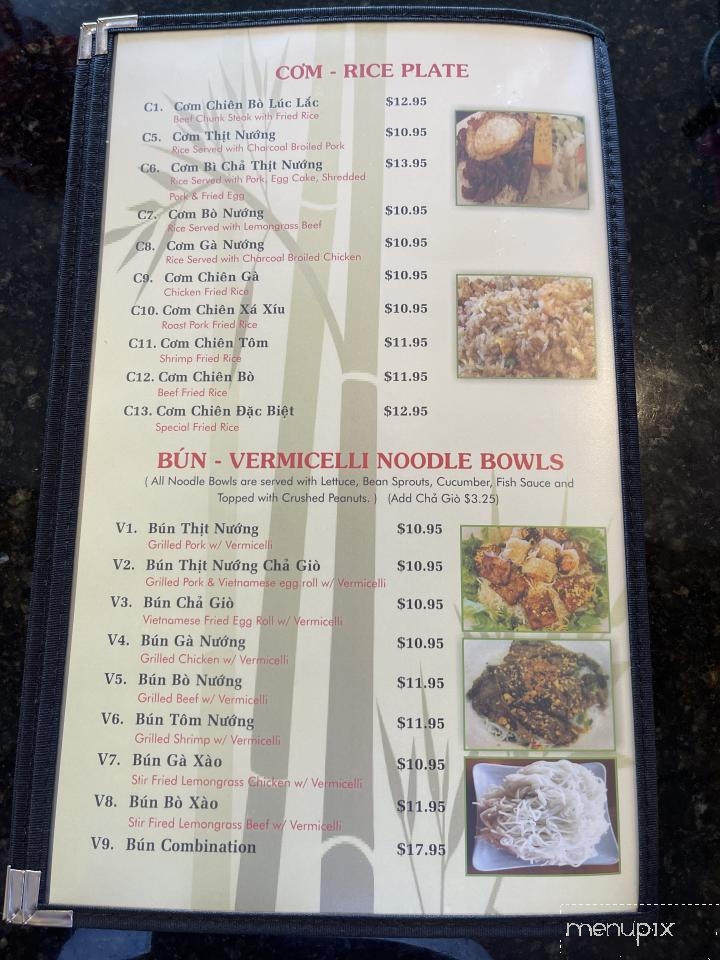 CƠM - RICE PLATE
C1. Cơm Chiên Bò Lúc Lắc $12.95
Beef Chunk Steak with Fried Rice
C5. Cơm Thịt Nướng $10.95
Rice Served with Charcoal Broiled Pork
C6. Cơm Bì Chả Thịt Nướng $13.95
Rice Served with Pork, Egg Cake, Shredded
Pork & Fried Egg
C7. Cơm Bò Nướng $10.95
Rice Served with Lemongrass Beef
C8. Cơm Gà Nướng $10.95
Rice Served with Charcoal Broiled Chicken
C9. Cơm Chiên Gà $10.95
Chicken Fried Rice
C10. Cơm Chiên Xá Xíu $10.95
Roast Pork Fried Rice
C11. Cơm Chiên Tôm $11.95
Shrimp Fried Rice
C12. Cơm Chiên Bò $11.95
Beef Fried Rice
C13. Cơm Chiên Đặc Biệt $12.95
Special Fried Rice
BÚN - VERMICELLI NOODLE BOWLS
( All Noodle Bowls are served with Lettuce, Bean Sprouts, Cucumber, Fish Sauce and
Topped with Crushed Peanuts. ) (Add Chả Giò $3.25)
V1. Bún Thịt Nướng $10.95
Grilled Pork w/ Vermicelli
V2. Bún Thịt Nướng Chả Giò $10.95
Grilled Pork & Vietnamese egg roll w/ Vermicelli
V3. Bún Chả Giò $10.95
Vietnamese Fried Egg Roll w/ Vermicelli
V4. Bún Gà Nướng $10.95
Grilled Chicken w/ Vermicelli
V5. Bún Bò Nướng $11.95
Grilled Beef w/ Vermicelli
V6. Bún Tôm Nướng $11.95
Grilled Shrimp w/ Vermicelli
V7. Bún Gà Xào $10.95
Stir Fried Lemongrass Chicken w/ Vermicelli
V8. Bún Bò Xào $11.95
Stir Fired Lemongrass Beef w/ Vermicelli
V9. Bún Combination $17.95
menupix